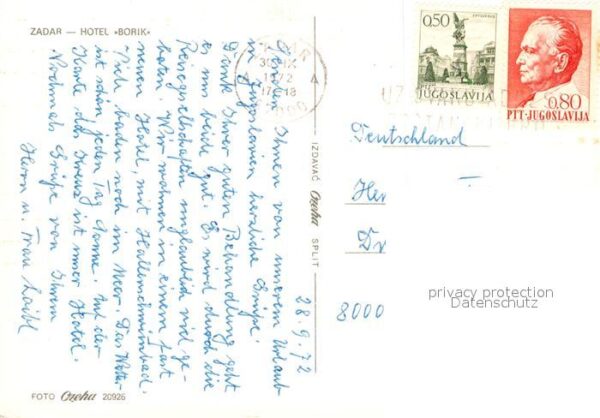 ZADAR — HOTEL »BORIK«
28.9.72
Senden Ihnen von unserem Urlaub
in Jugoslawien herzliche Grüße!
Dank Ihrer guten Behandlung geht
es mir beid gut. Es wird durch die
Reisegesellschaften unglaublich viel ge-
boten. Wir wohnen in einem fast
neuen Hotel, mit Hallenschwimmbad.
Viele baden noch im Meer. Das Wetter
ist schön, jeden Tag Sonne. Auf der
Karte das Kreuz ist unser Hotel.
Nochmals Grüße von Ihrem
Herrn u. Frau
FOTO Ozeha 20926
IZDAVAČ Ozeha SPLIT
30. IX
1972
0,50
JUGOSLAVIJA
0,80
PTT-JUGOSLAVIJA
Deutschland
Her
Dr
8000
privacy protection
Datenschutz